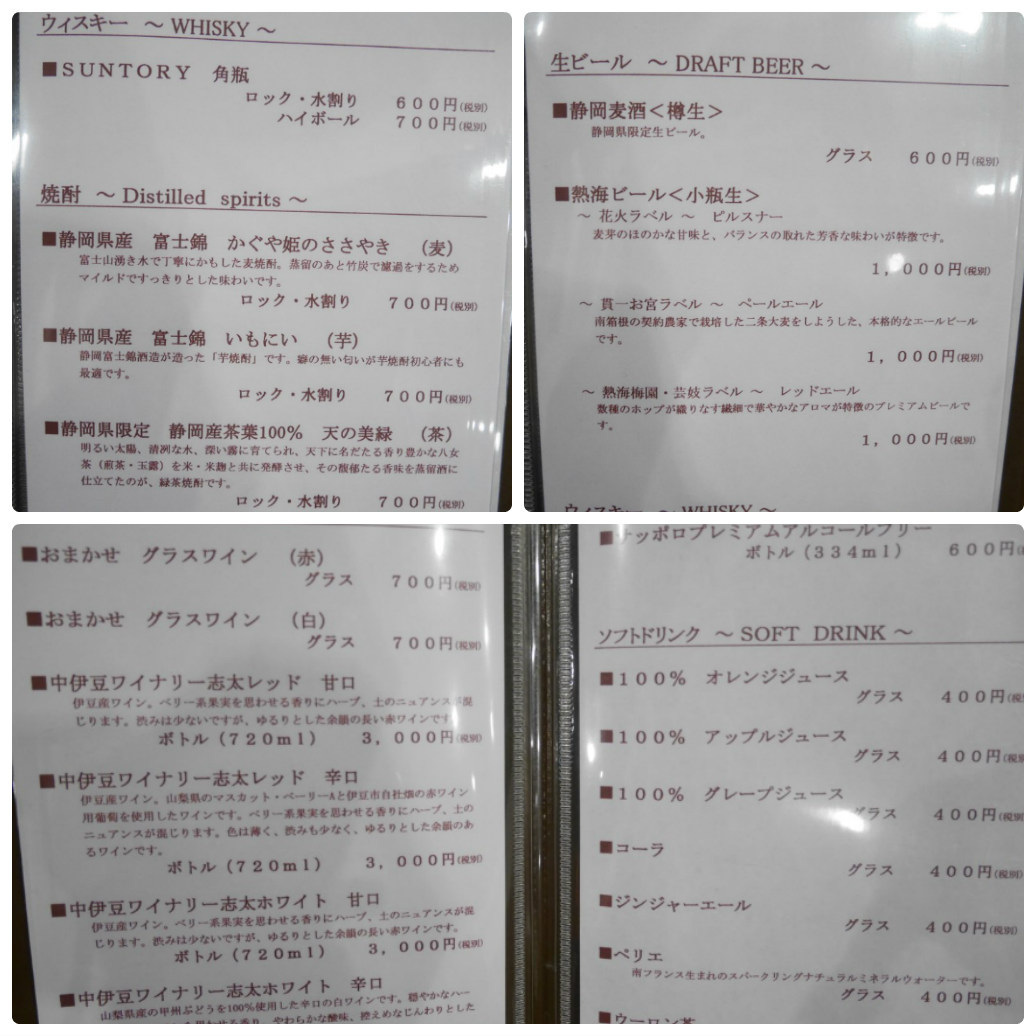 ウィスキー ～ WHISKY ～
■ＳＵＮＴＯＲＹ 角瓶
ロック・水割り ６００円(税別)
ハイボール ７００円(税別)
焼酎 ～ Distilled spirits ～
■静岡県産 富士錦 かぐや姫のささやき （麦）
富士山湧き水で丁寧にかもした麦焼酎。蒸留のあと竹炭で濾過をするため
マイルドですっきりとした味わいです。
ロック・水割り ７００円(税別)
■静岡県産 富士錦 いもにい （芋）
静岡富士錦酒造が造った「芋焼酎」です。癖の無い匂いが芋焼酎初心者にも
最適です。
ロック・水割り ７００円(税別)
■静岡県限定 静岡産茶葉100% 天の美緑 （茶）
明るい太陽、清冽な水、深い霧に育てられ、天下に名だたる香り豊かな八女
茶（煎茶・玉露）を米・米麹と共に発酵させ、その馥郁たる香味を蒸留酒に
仕立てたのが、緑茶焼酎です。
ロック・水割り ７００円(税別)
生ビール ～ DRAFT BEER ～
■静岡麦酒＜樽生＞
静岡県限定生ビール。
グラス ６００円(税別)
■熱海ビール＜小瓶生＞
～ 花火ラベル ～ ピルスナー
麦芽のほのかな甘味と、バランスの取れた芳香な味わいが特徴です。
１，０００円(税別)
～ 貫一お宮ラベル ～ ペールエール
南箱根の契約農家で栽培した二条大麦をしようした、本格的なエールビール
です。
１，０００円(税別)
～ 熱海梅園・芸妓ラベル ～ レッドエール
数種のホップが織りなす繊細で華やかなアロマが特徴のプレミアムビールで
す。
１，０００円(税別)
ウィスキー ～ WHISKY ～
■おまかせ グラスワイン （赤）
グラス ７００円(税別)
■おまかせ グラスワイン （白）
グラス ７００円(税別)
■中伊豆ワイナリー志太レッド 甘口
伊豆産ワイン。ベリー系果実を思わせる香りにハーブ、土のニュアンスが混
じります。渋みは少ないですが、ゆるりとした余韻の長い赤ワインです。
ボトル（７２０ｍｌ） ３，０００円(税別)
■中伊豆ワイナリー志太レッド 辛口
伊豆産ワイン。山梨県のマスカット・ベーリーAと伊豆市自社畑の赤ワイン
用葡萄を使用したワインです。ベリー系果実を思わせる香りにハーブ、土の
ニュアンスが混じります。色は薄く、渋みも少なく、ゆるりとした余韻のあ
るワインです。
ボトル（７２０ｍｌ） ３，０００円(税別)
■中伊豆ワイナリー志太ホワイト 甘口
伊豆産ワイン。ベリー系果実を思わせる香りにハーブ、土のニュアンスが混
じります。渋みは少ないですが、ゆるりとした余韻の長い赤ワインです。
ボトル（７２０ｍｌ） ３，０００円(税別)
■中伊豆ワイナリー志太ホワイト 辛口
山梨県産の甲州ぶどうを100%使用した辛口の白ワインです。穏やかなハー
やわらかな酸味、控えめなじんわりとした
■サッポロプレミアムアルコールフリー
ボトル（３３４ｍｌ） ６００円(税別)
ソフトドリンク ～ SOFT DRINK ～
■１００％ オレンジジュース
グラス ４００円(税別)
■１００％ アップルジュース
グラス ４００円(税別)
■１００％ グレープジュース
グラス ４００円(税別)
■コーラ
グラス ４００円(税別)
■ジンジャーエール
グラス ４００円(税別)
■ペリエ
南フランス生まれのスパークリングナチュラルミネラルウォーターです。
グラス ４００円(税別)
■ウーロン茶